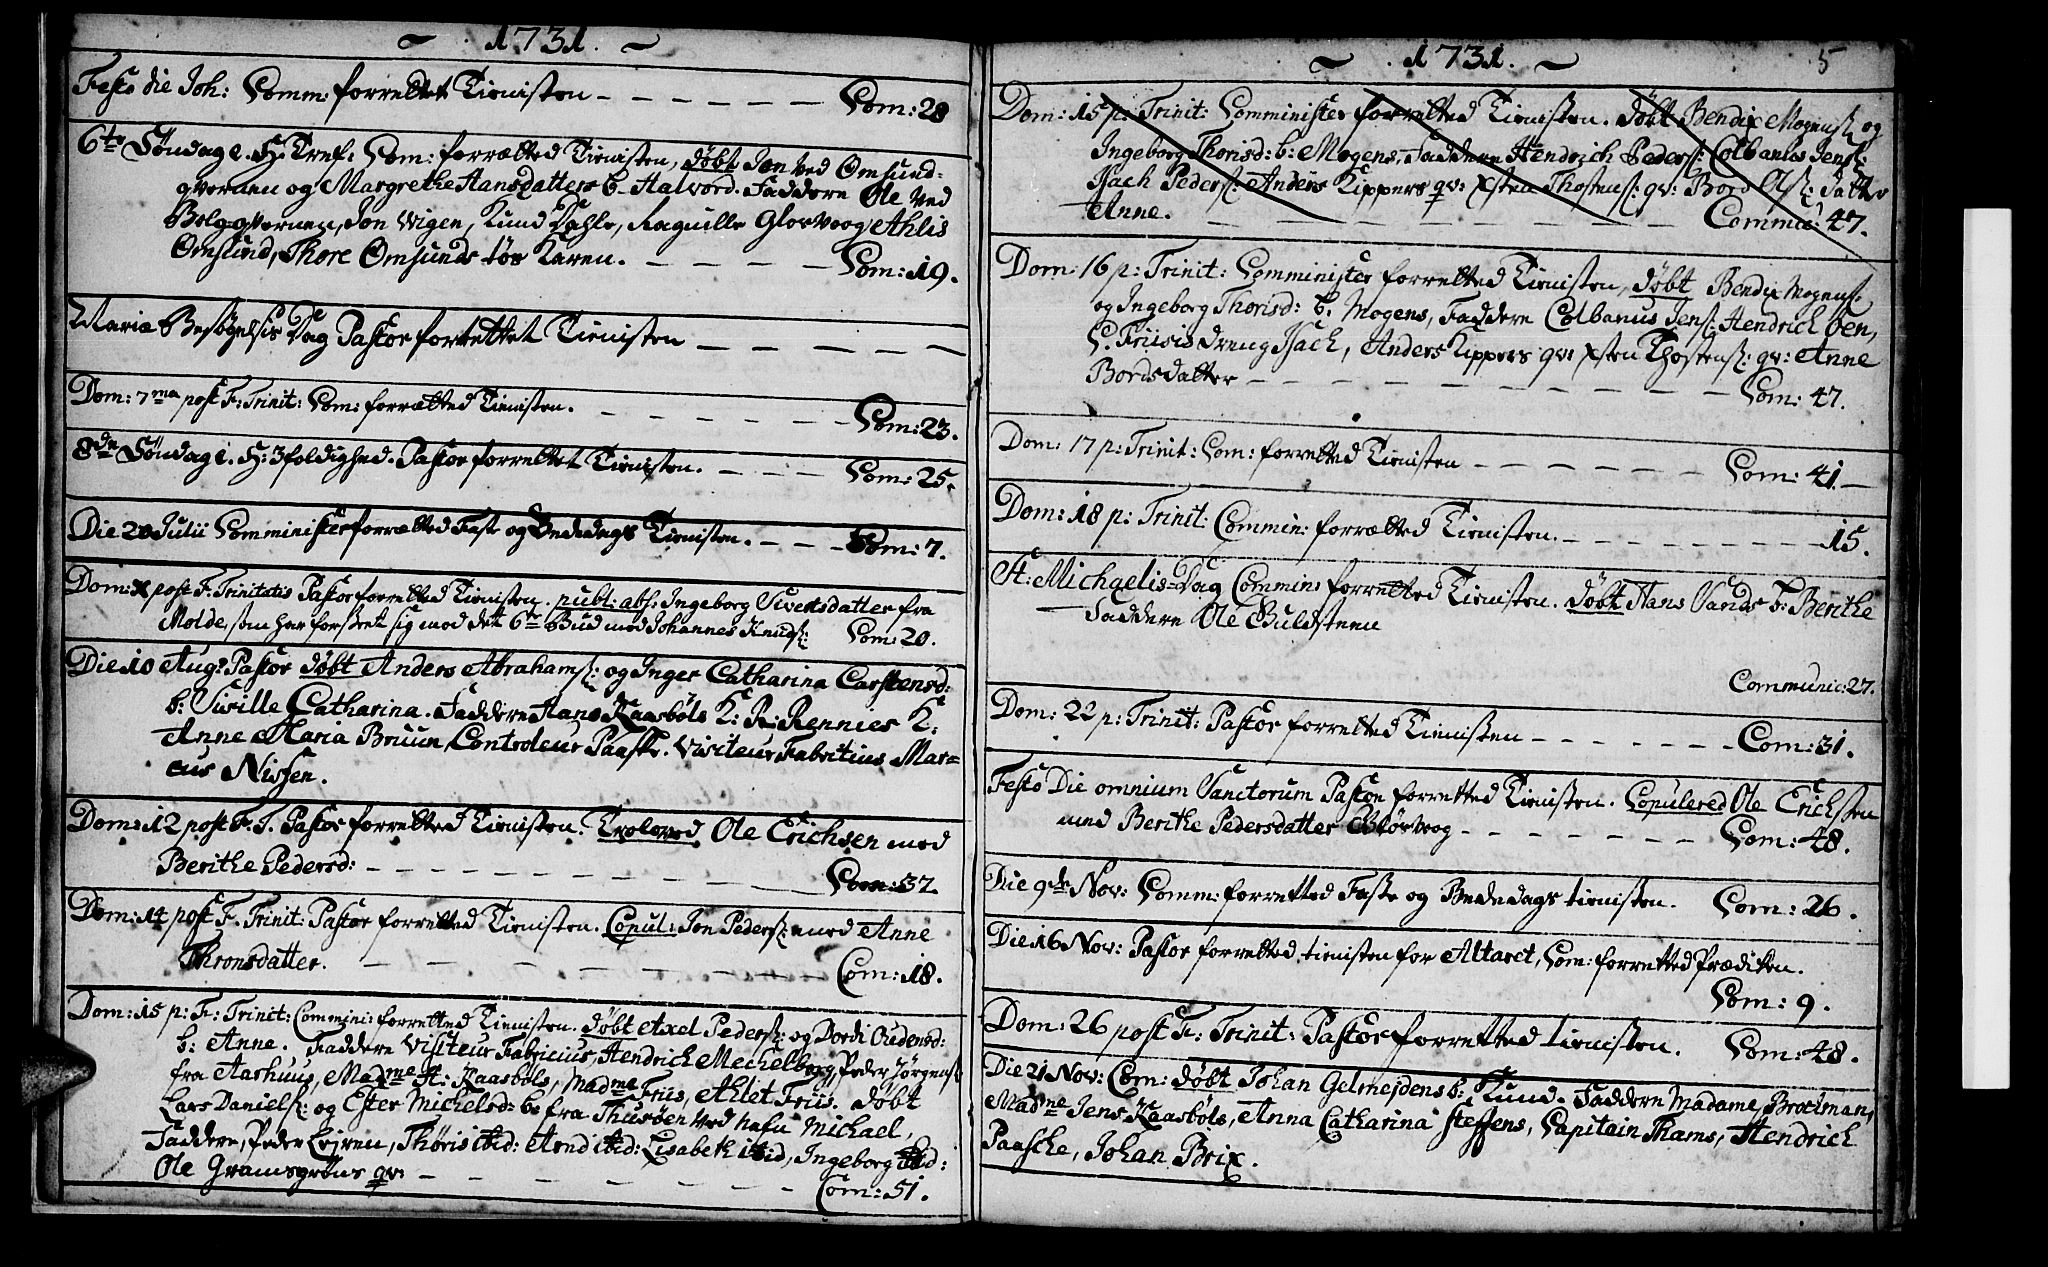 ~ 1731. ~
Festo die Joh: Comm: forrettet Tienisten - - - - - - Com: 28
6te Söndag e. H: Tref: Com: forrætted Tienisten, døbt Jon ved Omsund-
qvernen og Margrethe Hansdatters b- Halvord. Faddere Ole ved
Bolgqvernen, Jon Wigen, Knud Dahle, Raguille Glorvoog Athlis
Omsund, Thore Omsunds tös Karen. - - - - Com: 19.
Mariæ Besögelsis Dag Pastor forrettet Tienisten - - - - -
Dom: 7ma post F: Trinit: Com: forrætted Tienisten. - - - - - Com: 23.
8de Söndag e. H: 3foldighed. Pastor forrettet Tienisten. - - - - Com: 25.
Die 20 Julii Comminister forrætted Fast og Bededags Tienisten. - - - Com: 7.
Dom: X post F. Trinitatis Pastor forretted Tienisten. publ: abs: Ingeborg Sivertsdatter fra
Molde, som har forseet sig mod det 6te Bud med Johannes Knuds: Com: 20.
Die 10 Aug: Pastor døbt Anders Abrahams: og Inger Catharina Carstensd:
b: Sisille Catharina. Faddere Hans Kaasböls K: R: Rennies K:
Anne Maria Bruun, Controleur Paaske. Visiteur Fabritius Mar=
cus Nissen.
Dom: 12 post F. T. Pastor forretted Tienisten. Troloved Ole Erichsen med
Berithe Pedersd: - - - - - - - - - Com: 37.
Dom: 14 post F. Trinit: Pastor forretted Tienisten. Copul: Jon Peders: med Anne
Thronsdatter. - - - - - - - - - Com: 18.
Dom: 15 p: F: Trinit: Commini: forretted Tienisten. døbt Axel Peders: og Dordi Audensd:
b: Anne. Faddere Visiteur Fabricius, Hendrich Mechelborg, Peder Jörgens:
fra Aarhuus, Madme H: Kaasböls, Madme Friis, Athlet Friis. døbt
Lars Daniels: og Ester Michelsd: b: fra Thusöen ved nafn Michael,
Faddere, Peder Lejren, Thöris ibid: Arnd ibid: Lisabeth ibid, Ingeborg ibid:
Ole Gramsgröns qv: - - - - - - - Com: 51.
~ 1731. ~ 5
Dom: 15 p: Trinit: Comminister forretted Tienisten. døbt Bendix Mogens: og
Ingeborg Thorisd: b: Mogens, Faddere Hendrich Peders: Colbanus Jens:
Isach Peders: Anders Kippers qv: Xsten Thostens: qv: Bord Ols: datter
Anne. - - - - - - - Commu: 47.
Dom: 16 p: Trinit: Comminister forretted Tienisten, døbt Bendix Mogens:
og Ingeborg Thorisd: b. Mogens, Faddere Colbanus Jens: Hendrich
C. Friisis dreng Isach, Anders Kippers qv: Xsten Thostens: qv: Anne
Bordsdatter - - - - - - - - Com: 47.
Dom: 17 p: Trinit: Com: forretted Tienisten - - - - - - Com: 41. -
Dom: 18 p: Trinit: Commin: forrætted Tienisten. - - - - - - 15.
St: Michaelis=Dag Commin: forretted Tienisten. døbt Hans Sands b: Berithe
Faddere Ole Guldsteen
Communic: 27.
Dom: 22 p: Trinit: Pastor forretted Tienisten - - - - - - Com: 31.
Festo Die omnium Sanctorum Pastor forretted Tienisten. Copulered Ole Erichsen
med Berithe Pedersdatter Glörvoog - - - - - - - Com: 48.
Die 9de Nov: Comm: forretted Faste og Bededags tienisten. Com: 26.
Die 16 Nov: Pastor forretted tienisten for Altaret, Com: forretted Prædiken.
Com: 9.
Dom: 26 post F: Trinit: Pastor forretted tienisten. Com: 48.
Die 21 Nov: Com: døbt Johan Gelmejdens b: Knud. Faddere Madame Brochman,
Madme Jens Kaasböls, Anna Catharina Steffens, Capitain Thams, Hendrich
Paasche, Johan Brix.